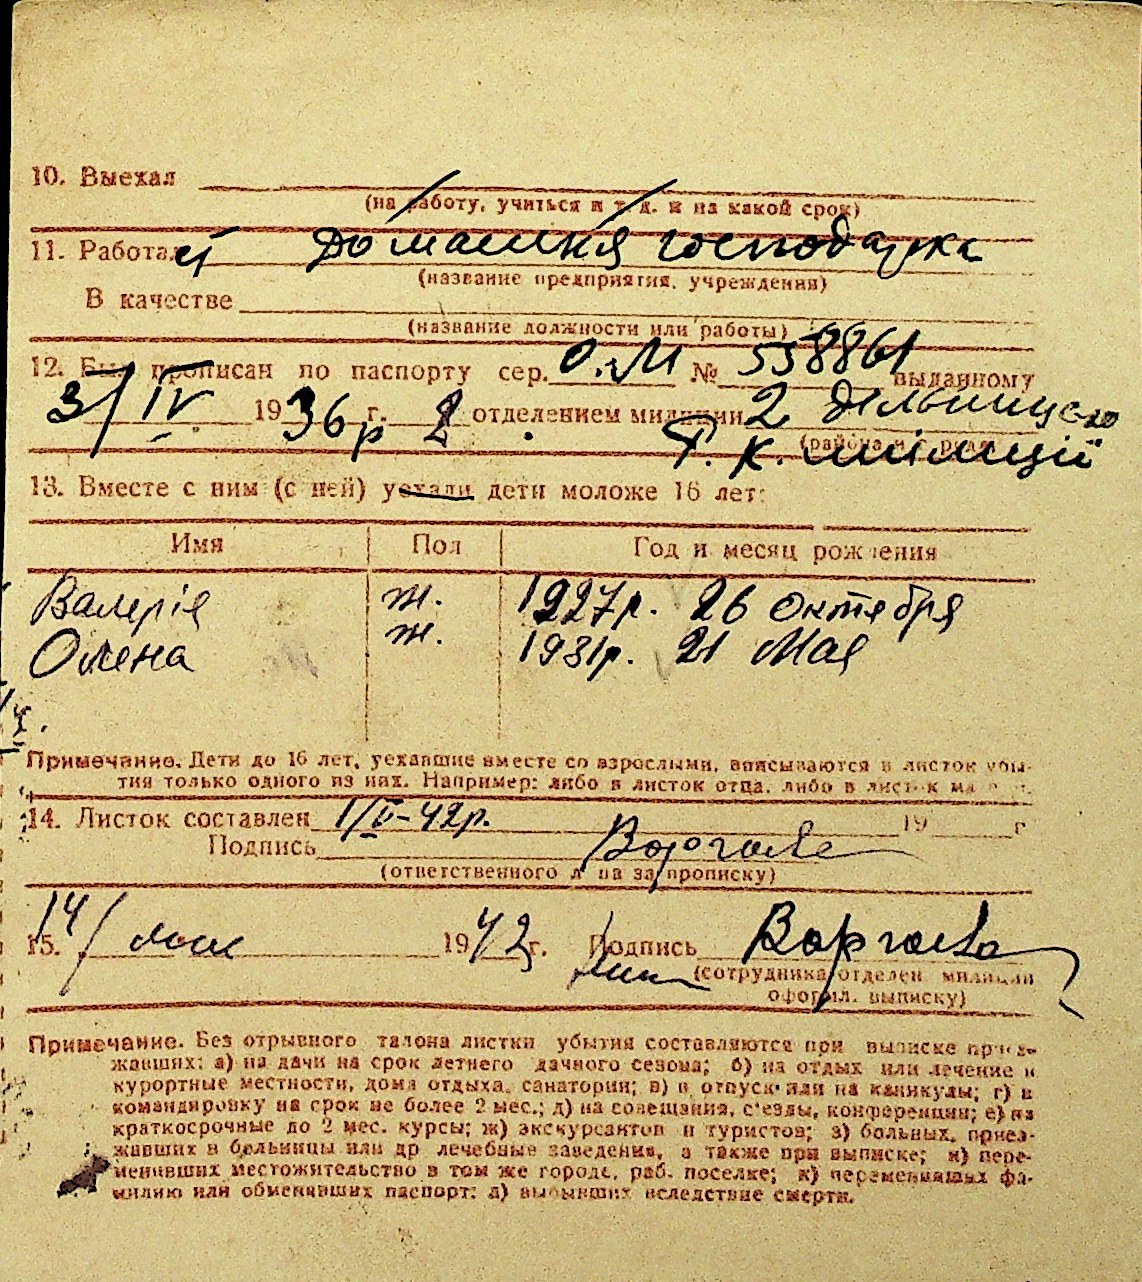 10. Выехал
(на работу, учиться и т. д. и на какой срок)
11. Работает Домашня господарка
(название предприятия, учреждения)
В качестве
(название должности или работы)
12. Был прописан по паспорту сер. О.М № 558861 выданному
3/IV 1936 р г. 2 отделением милиции 2 дільницею
(района и города)
Р. К. міліції
13. Вместе с ним (с ней) уехали дети моложе 16 лет:
Имя Пол Год и месяц рождения
Валерія ж. 1927р. 26 Октября
Олена ж. 1931р. 21 Мая
Примечание. Дети до 16 лет, уехавшие вместе со взрослыми, вписываются в листок убы-
тия только одного из них. Например: либо в листок отца, либо в листок
14. Листок составлен 1/V-42р. 19 г
Подпись
(ответственного лица за прописку)
15. 14/ мая 1942г. Подпись
(сотрудника отделен милиции
оформил. выписку)
Примечание. Без отрывного талона листки убытия составляются при выписке приез-
жавших: а) на дачи на срок летнего дачного сезона; б) на отдых или лечение в
курортные местности, дома отдыха, санатории; в) в отпуск или на каникулы; г) в
командировку на срок не более 2 мес.; д) на совещания, с'езды, конференции; е) на
краткосрочные до 2 мес. курсы; ж) экскурсантов и туристов; з) больных, приез-
жавших в больницы или др лечебные заведения, а также при выписке; и) пере-
менивших местожительство в том же городе, раб. поселке; к) переменивших фа-
милию или обменявших паспорт; л) выбывших вследствие смерти.